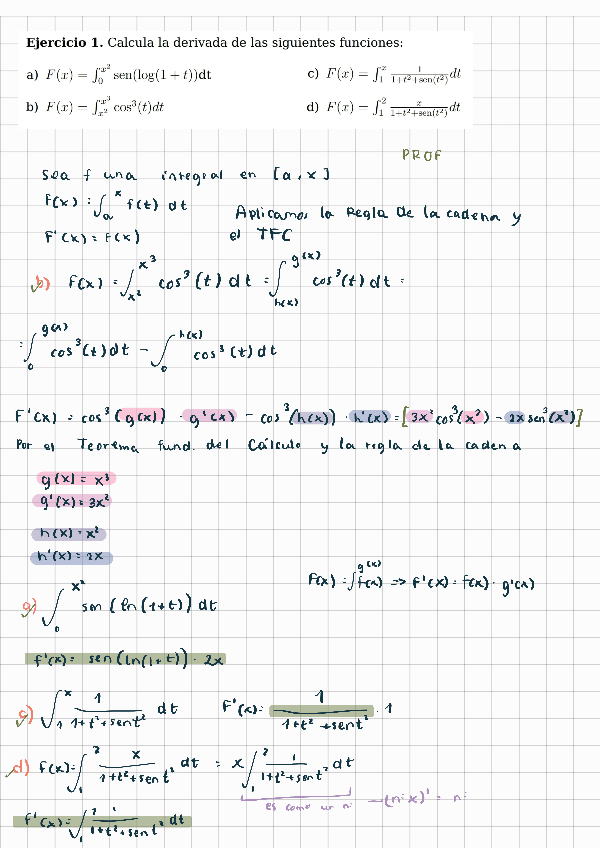 Ejercicio 1. Calcula la derivada de las siguientes funciones:
a) F(x) = ∫₀^{x²} sen(log(1 + t))dt
c) F(x) = ∫₁^x 1/(1+t²+sen(t²)) dt
b) F(x) = ∫_{x²}^{x³} cos³(t)dt
d) F(x) = ∫₁² x/(1+t²+sen(t²)) dt
PROF
Sea f una integral en [a, x]
F(x) = ∫ₐ^x f(t) dt
Aplicamos la Regla De la cadena y
F'(x) = F(x)
el TFC
b) F(x) = ∫_{x²}^{x³} cos³(t) dt = ∫_{h(x)}^{g(x)} cos³(t) dt =
= ∫₀^{g(x)} cos³(t) dt − ∫₀^{h(x)} cos³(t) dt
F'(x) = cos³(g(x)) · g'(x) − cos³(h(x)) · h'(x) = [3x² cos³(x³) − 2x sen³(x²)]
Por el Teorema fund. del Cálculo y la regla de la cadena
g(x) = x³
g'(x) = 3x²
h(x) = x²
h'(x) = 2x
F(x) = ∫^{g(x)} f(x) => F'(x) = f(x) · g'(x)
a) ∫₀^{x²} sen (ln(1+t)) dt
f'(x) = sen(ln(1+t)) · 2x
c) ∫₁^x 1/(1+t²+sent²) dt F'(x) = 1/(1+t²+sent²) · 1
d) F(x) = ∫₁² x/(1+t²+sent²) dt = x ∫₁² 1/(1+t²+sent²) dt
es como un nº → (nº x)' = nº
F'(x) = ∫₁² 1/(1+t²+sent²) dt